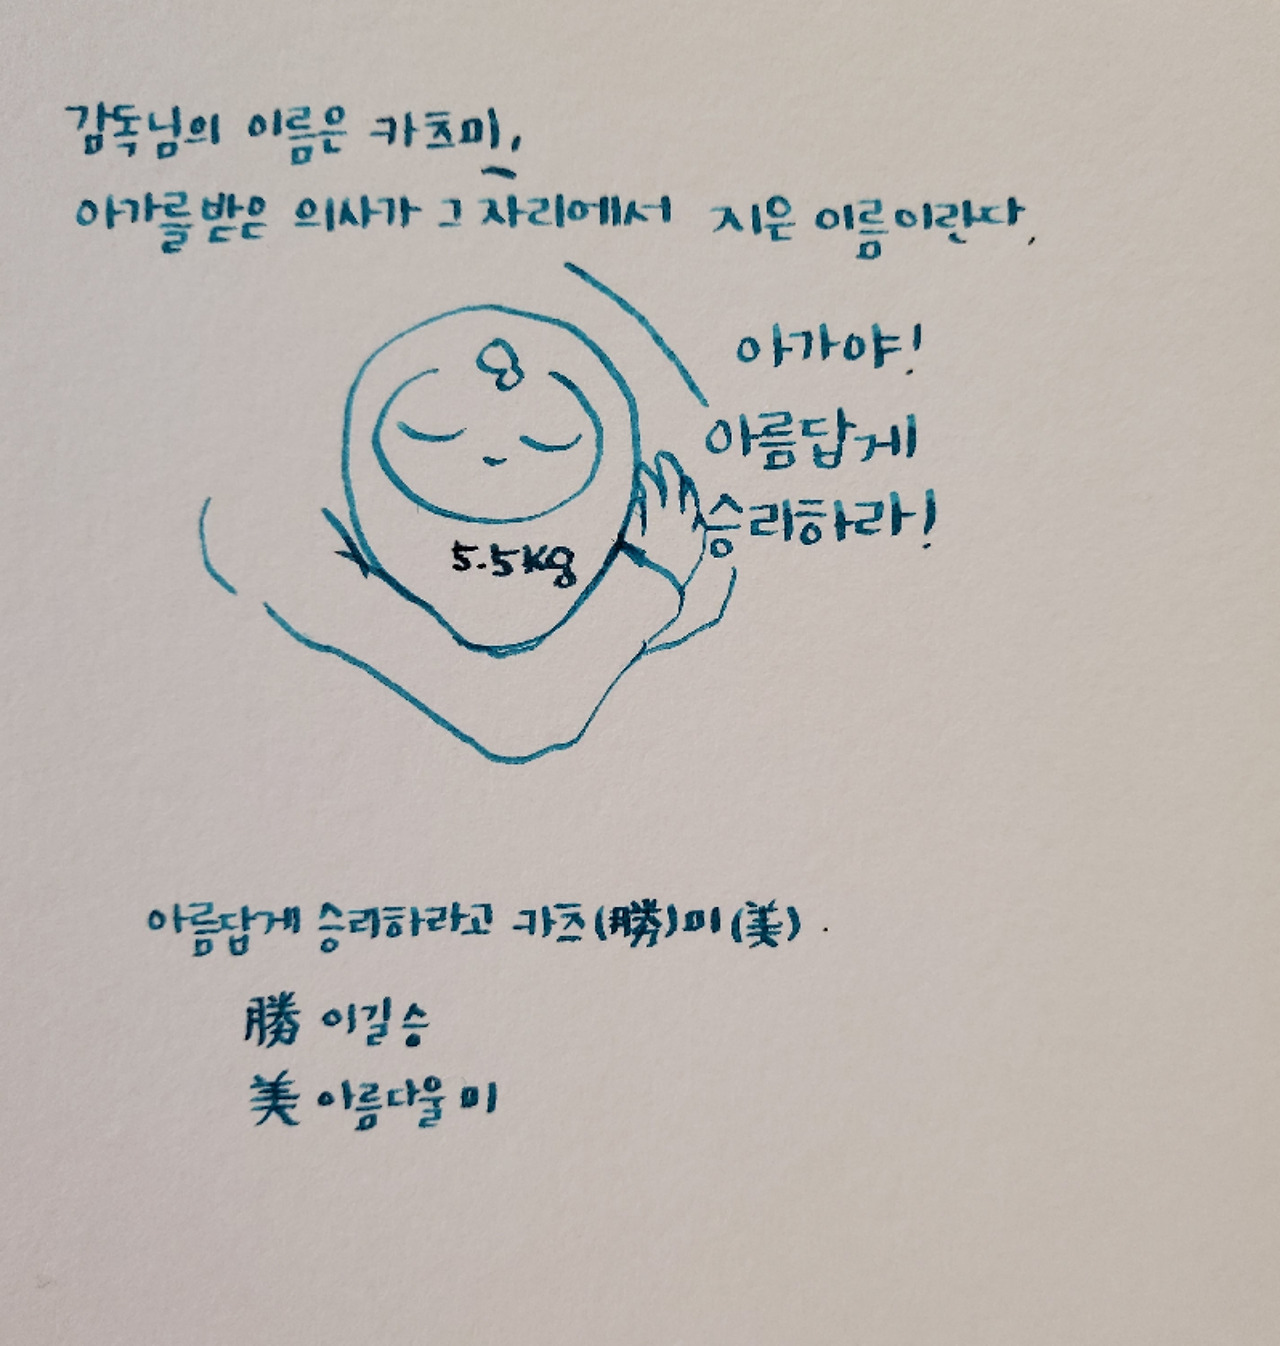 감독님의 이름은 카츠미,
아가를 받은 의사가 그 자리에서 지은 이름이란다.
아가야!
아름답게
승리하라!
5.5kg
아름답게 승리하라고 카츠(勝)미(美).
勝 이길 승
美 아름다울 미